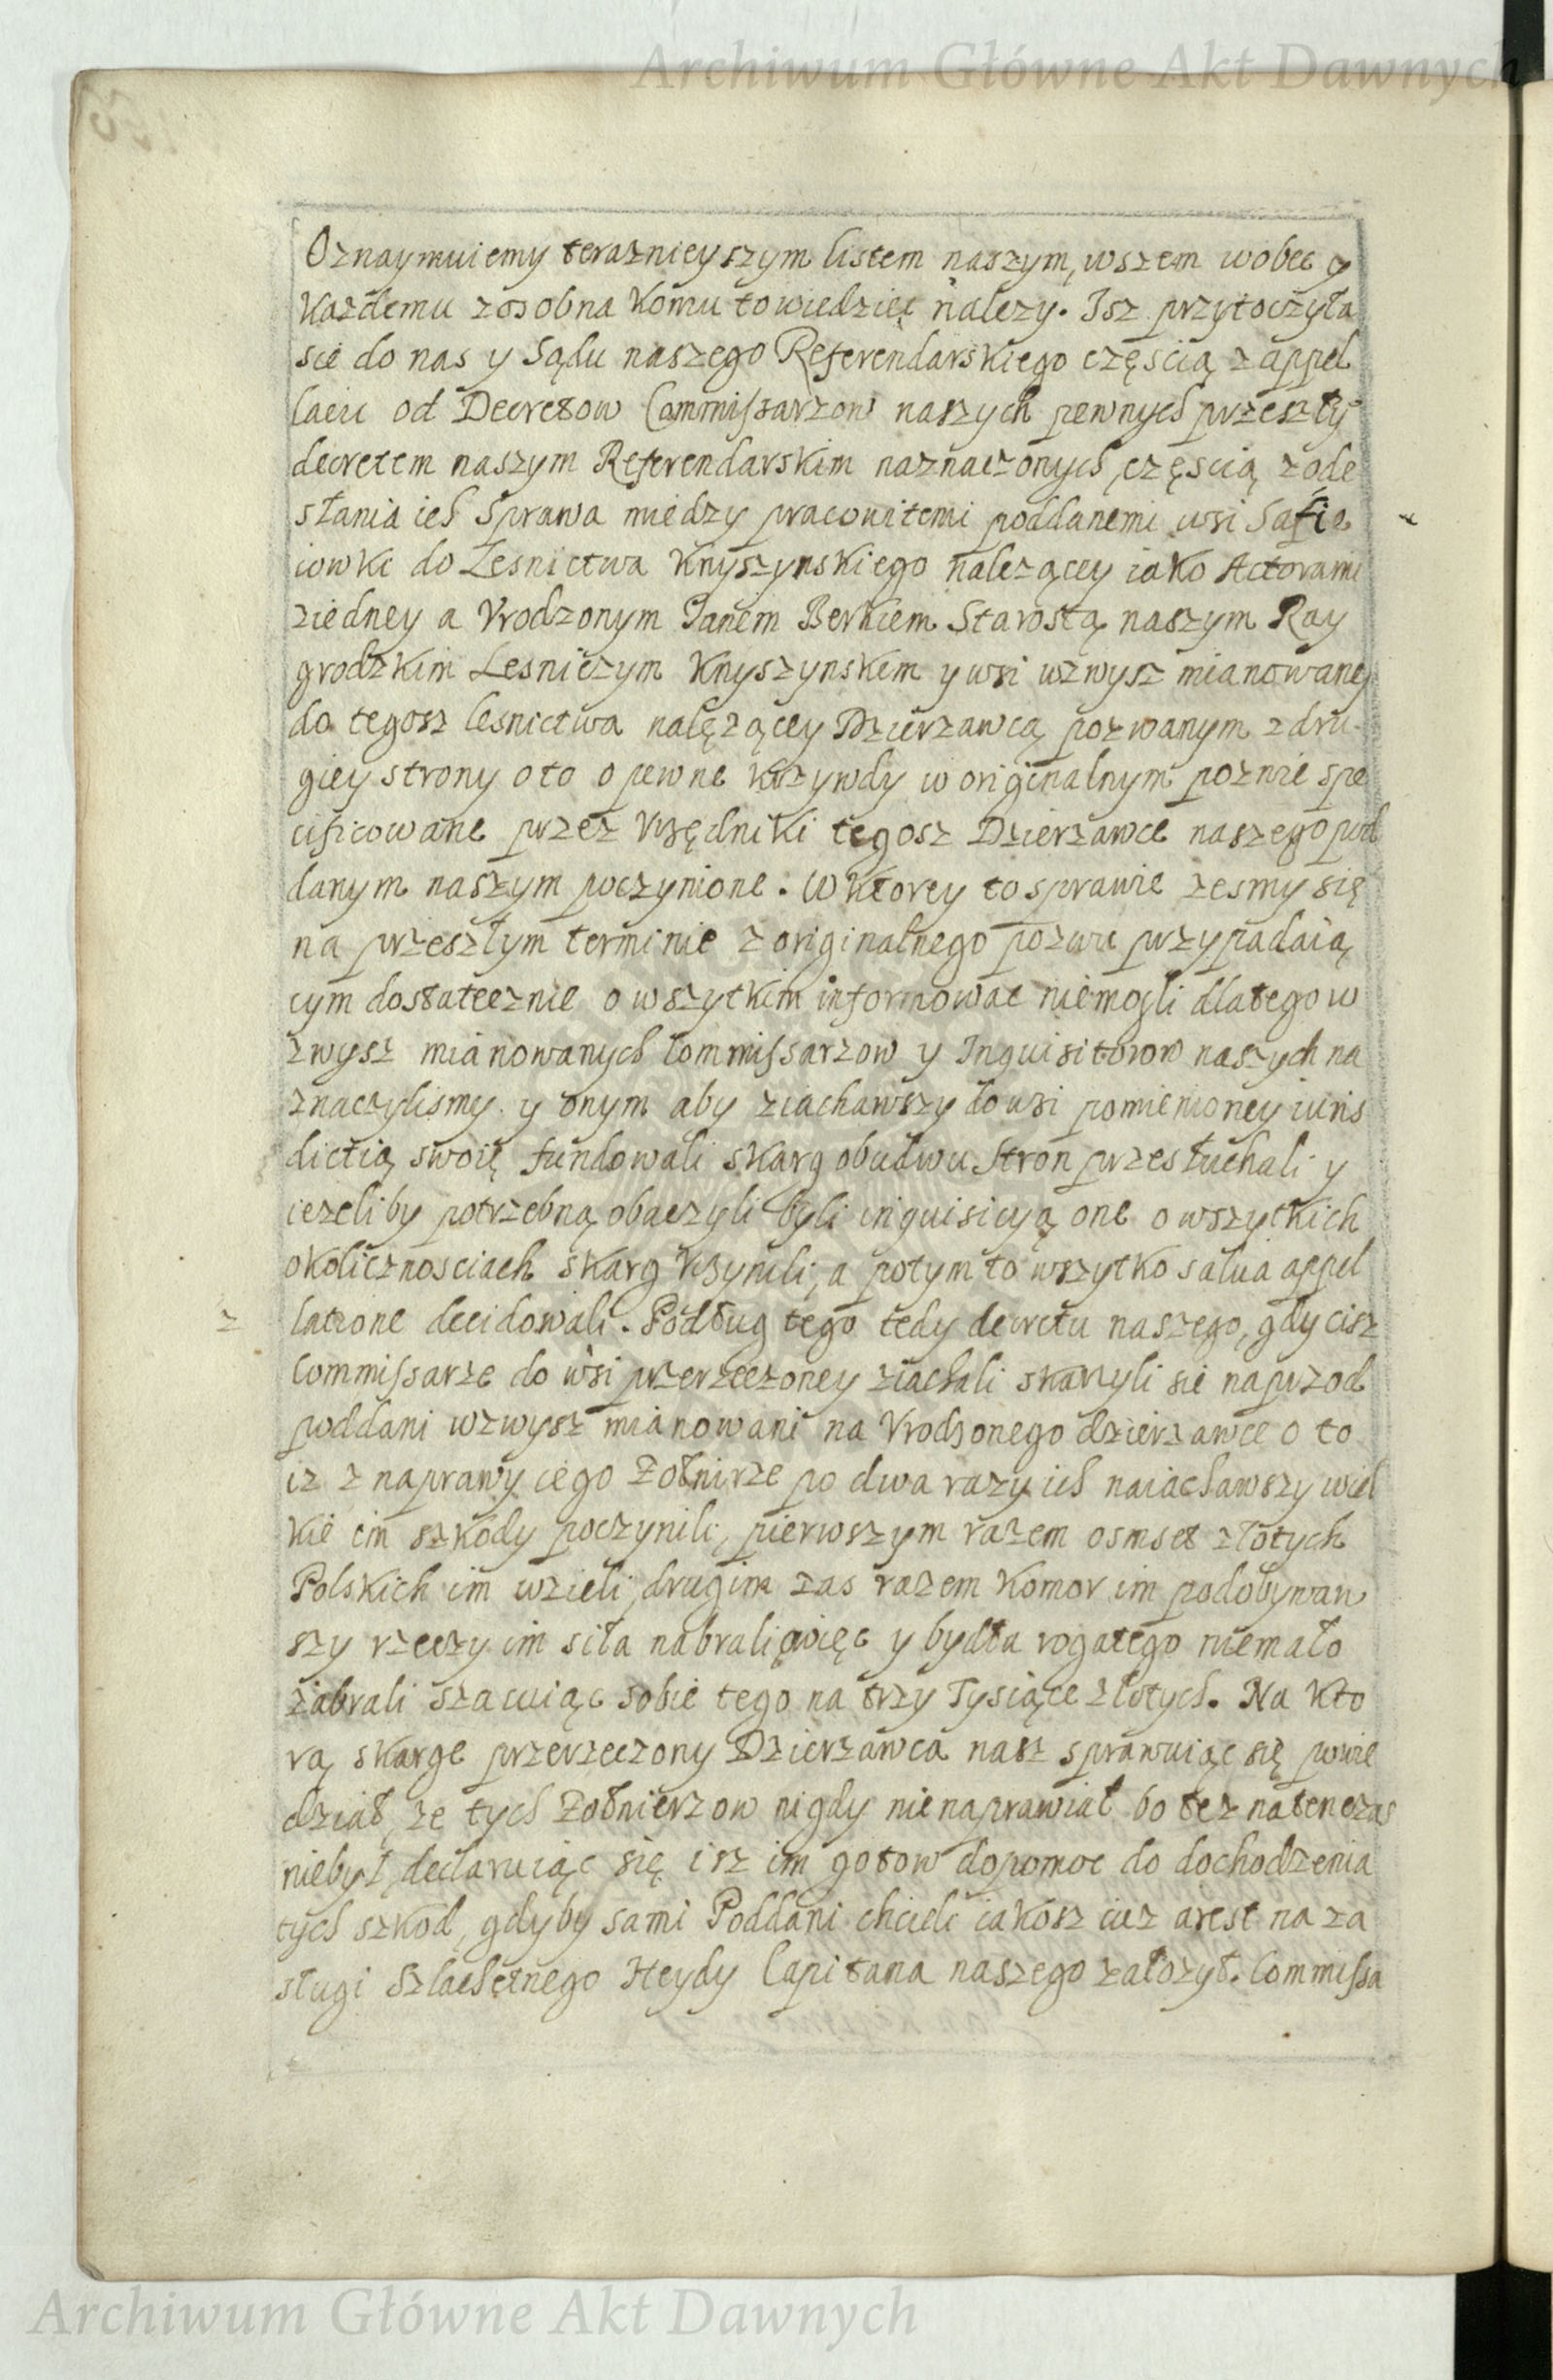 Archiwum Główne Akt Dawnych
Oznaymuiemy teraznieyszym listem naszym, wszem wobec y
Kazdemu zosobna Komu to wiedziec nalezy. Isz przytoczyła
sie do nas y Sądu naszego Referendarskiego częscią z appel
laciu od Decretow Commissarzow naszych pewnych przeszłÿ
decretem naszym Referendarskim naznaczonych, częscią z ode
słania ich Sprawa miedzy pracowitemi poddanemi wsi Safie
iowki do Lesnictwa Knyszynskiego nalezącey iako Actorami
ziedney a Vrodzonym Janem Berkiem Starostą naszym Ray
grodzkim Lesniczym Knyszynskem y wsi wzwysz mianowaney
do tegosz lesnictwa nalęzącey Dzierzawcą pozwanym z dru-
giey strony o to o pewne krzywdy w originalnym pozwie spe
cificowane przez Vrzędniki tegosz Dzierzawce naszego pod
danym naszym poczynione. W Ktorey to sprawie zesmy się
na przeszłym terminie z originalnego pozwu przypadaią
cym dostatecznie o wszytkim informowac niemogli dlatego w
zwysz mianowanych Commissarzow y Inquisitorow naszych na
znaczylismy y onym aby ziachawszy do wsi pomienioney iuris
dictią swoię fundowali skarg obudwu Stron przesłuchali y
iezeliby potrzebną obaczyli byli inquisicyą one o wszytkich
okolicznosciach skarg vczynili, a potym to wszytko salua appel
latione decidowali. Podług tego tedy decretu naszego, gdy cisz
Commissarze do wsi przerzeczoney ziachali skarzyli sie naprzod
poddani wzwysz mianowani na Vrodzonego dzierzawce o to
iz z naprawy iego Zołnirze po dwa razy ich naiachawszy wiel
kie im szkody poczynili, pierwszym razem osmset złotych
Polskich im wzieli, drugim zas razem Komor im podobywaw
szy rzeczy im siła nabrali więc y bydła rogatego niemało
zabrali szacuiąc sobie tego na trzy Tysiące złotych. Na Kto
rą skarge przerzeczony Dzierzawca nasz sprawuiąc się powie
dział, ze tych Zołnierzow nigdy nie naprawiał bo tez natenczas
niebył, declaruiąc się isz im gotow dopomoc do dochodzenia
tych szkod, gdyby sami Poddani chcieli iakosz iuz arest na za
sługi Szlachetnego Heydy Capitana naszego załozył. Commissa
Archiwum Główne Akt Dawnych